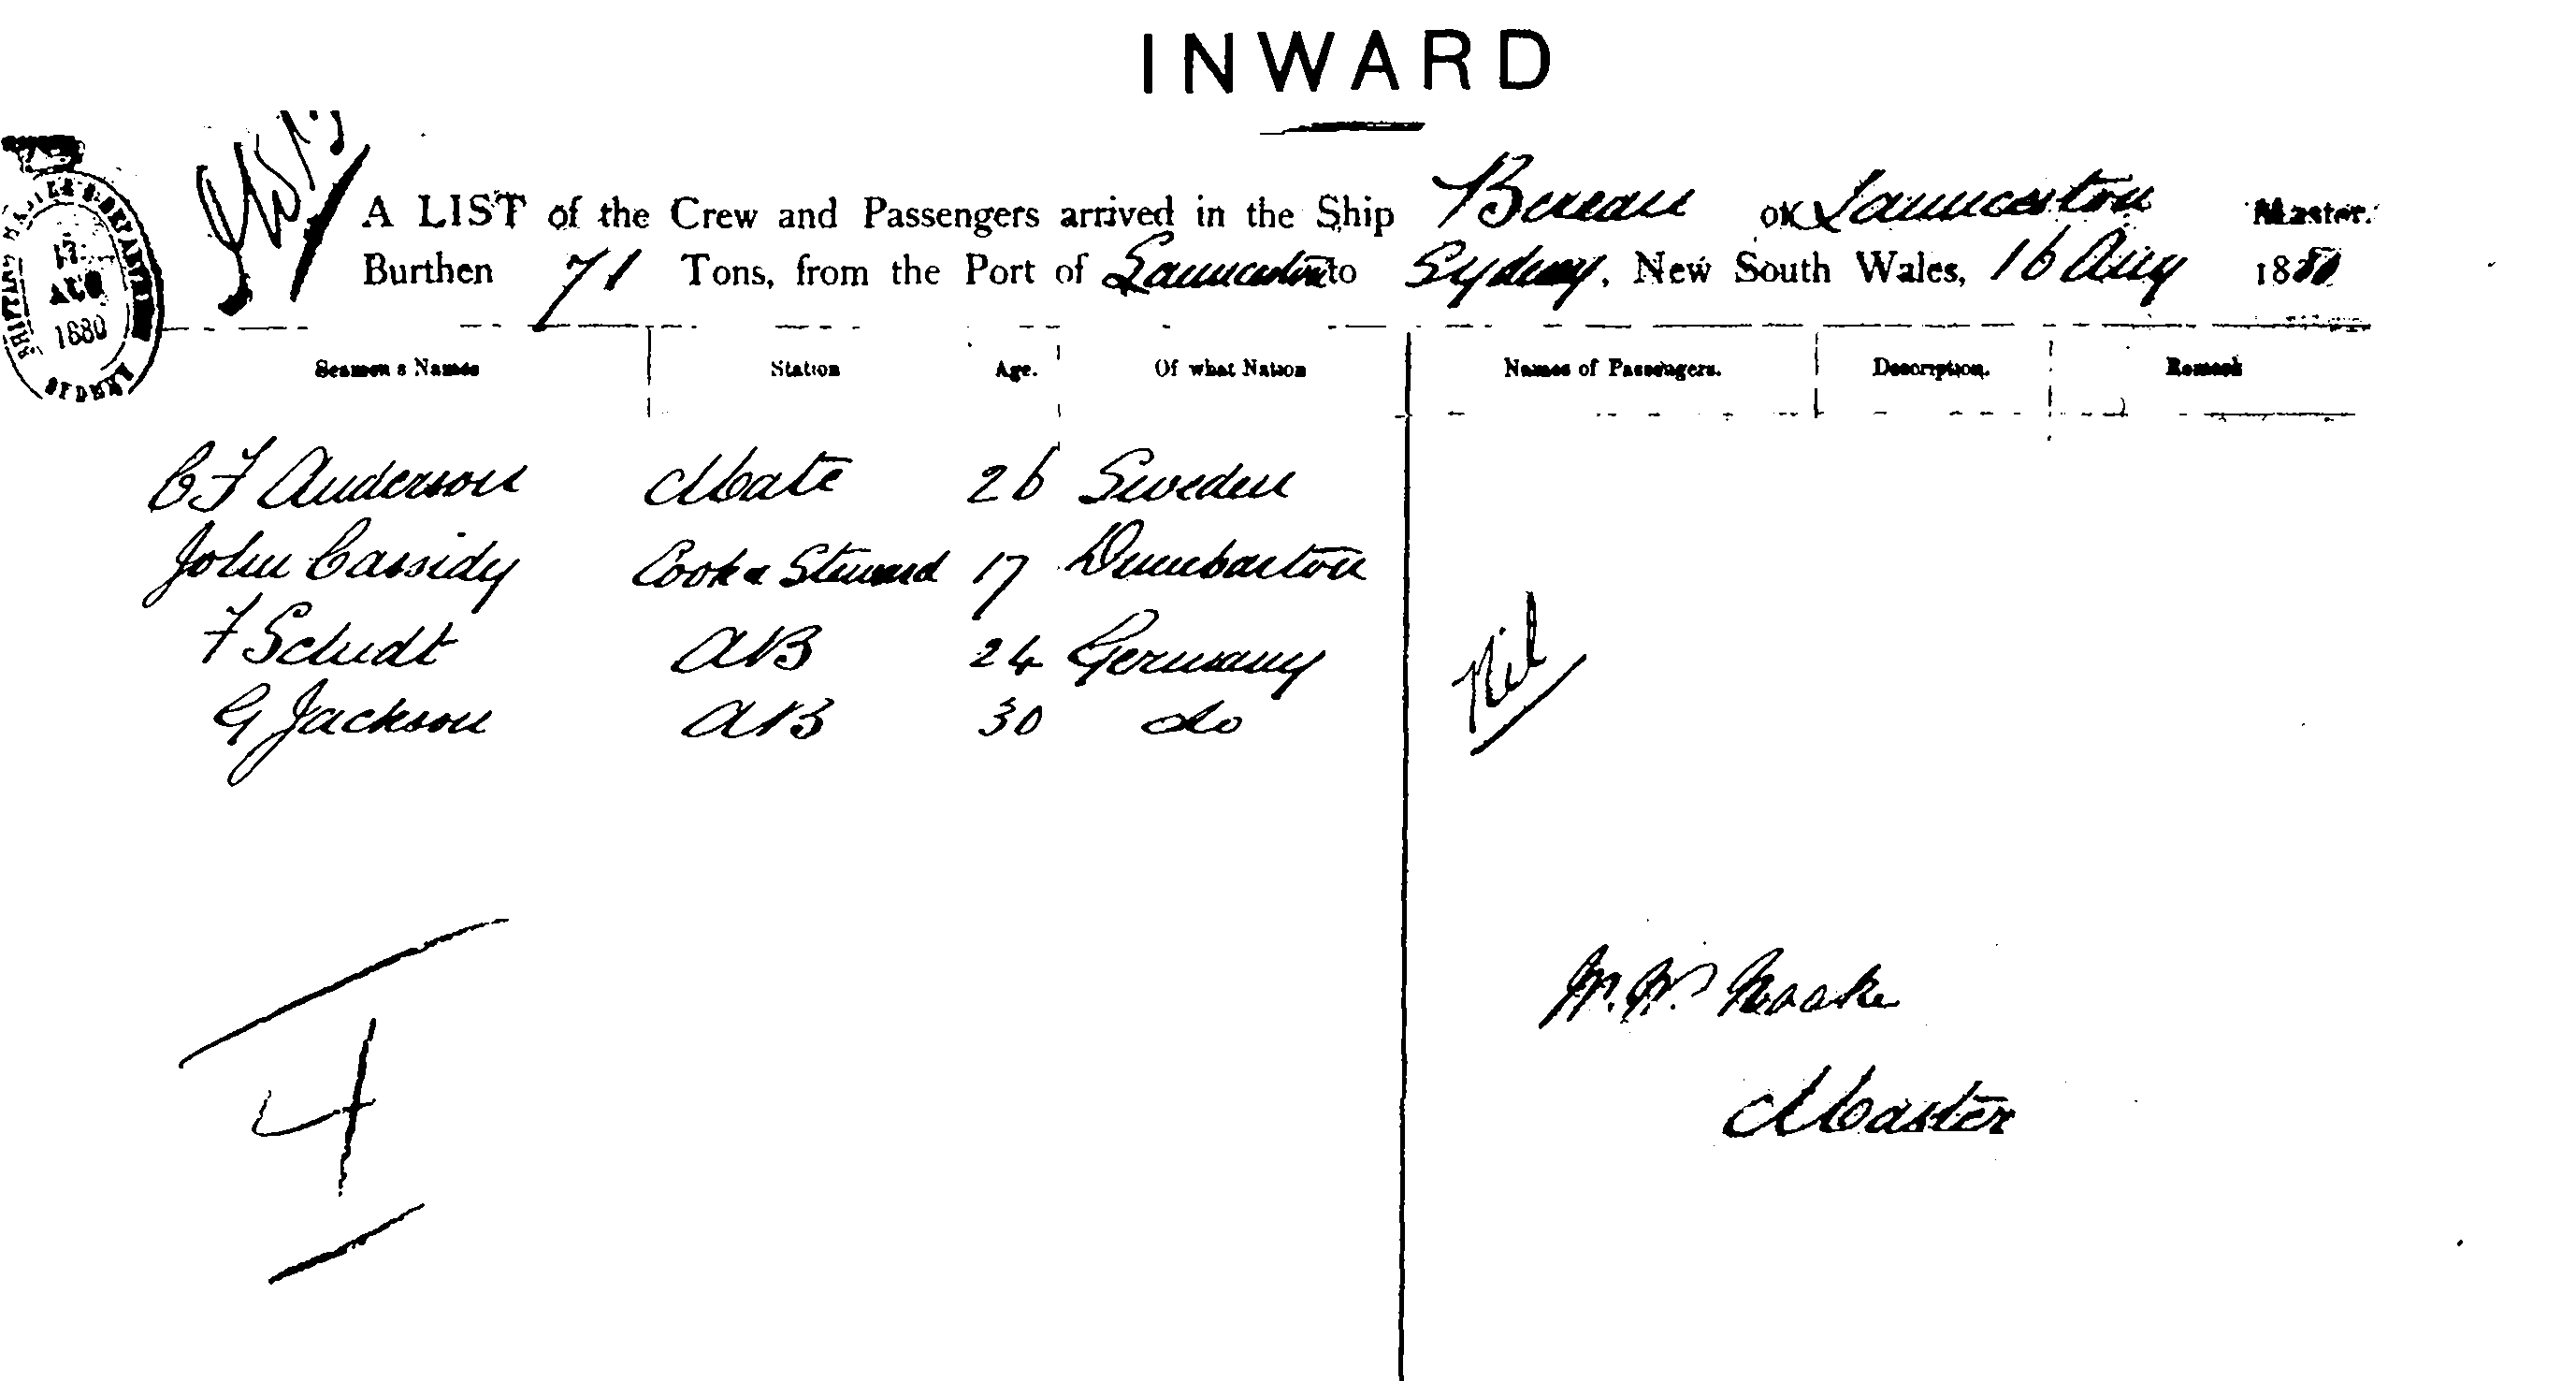 INWARD
A LIST of the Crew and Passengers arrived in the Ship Berean OF Launceston Master.
Burthen 71 Tons, from the Port of Launceston to Sydney, New South Wales, 16 Aug 1880
17 AUG 1880
SYDNEY
Seamen's Names Station Age. Of what Nation Names of Passengers. Description. Remark
C F Anderson Mate 26 Sweden
John Cassidy Cook & Steward 17 Dumbarton
F Schudt AB 24 Germany
G Jackson AB 30 do
Nil
4
Master